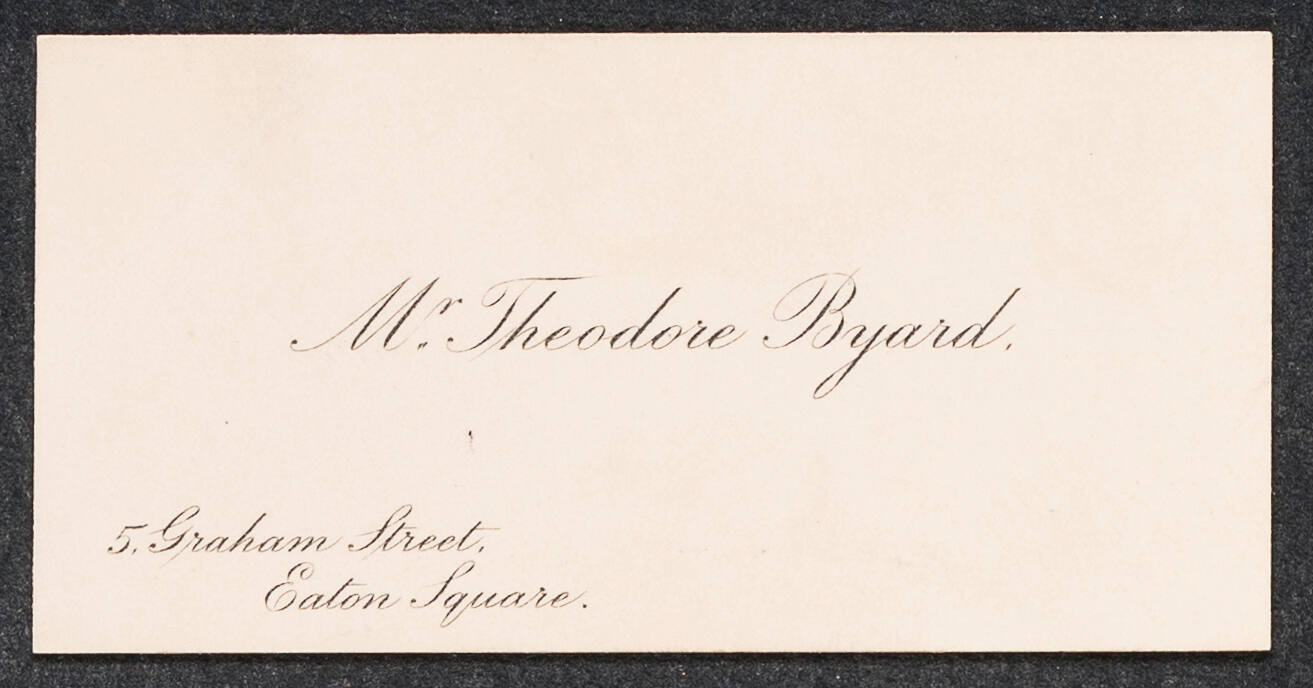 Mr. Theodore Byard.
5, Graham Street,
Eaton Square.